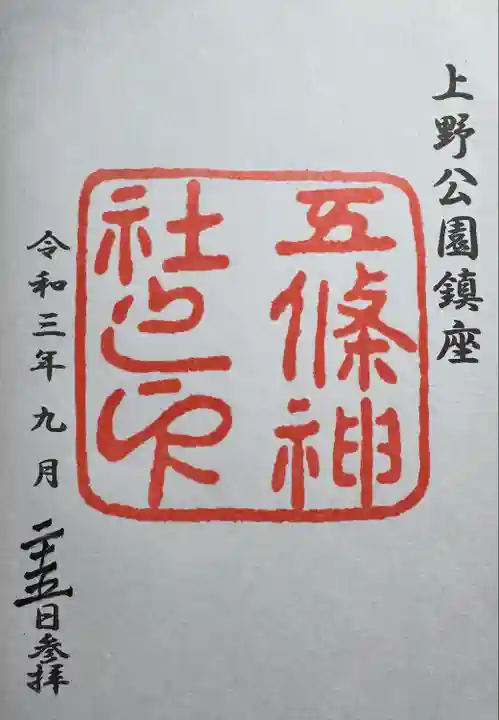 上野公園鎮座
五條神
社之印
令和三年九月二十五日参拝